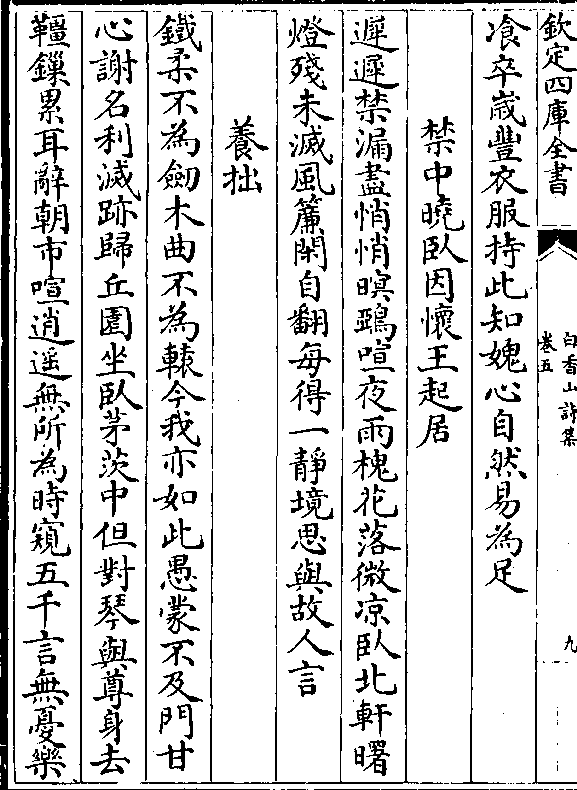 欽定四庫全書
白香山詩集
卷五
九
飡卒嵗豐衣服持此知媿心自然易為足
禁中曉臥因懷王起居
遲遲禁漏盡悄悄暝鵶喧夜雨槐花落微凉臥北軒曙
燈殘未滅風簾閑自翻每得一靜境思與故人言
養拙
鐵柔不為劒木曲不為轅今我亦如此愚蒙不及門甘
心謝名利滅跡歸丘園坐臥茅茨中但對琴與尊身去
韁鏁累耳辭朝市喧逍遥無所為時窺五千言無憂樂